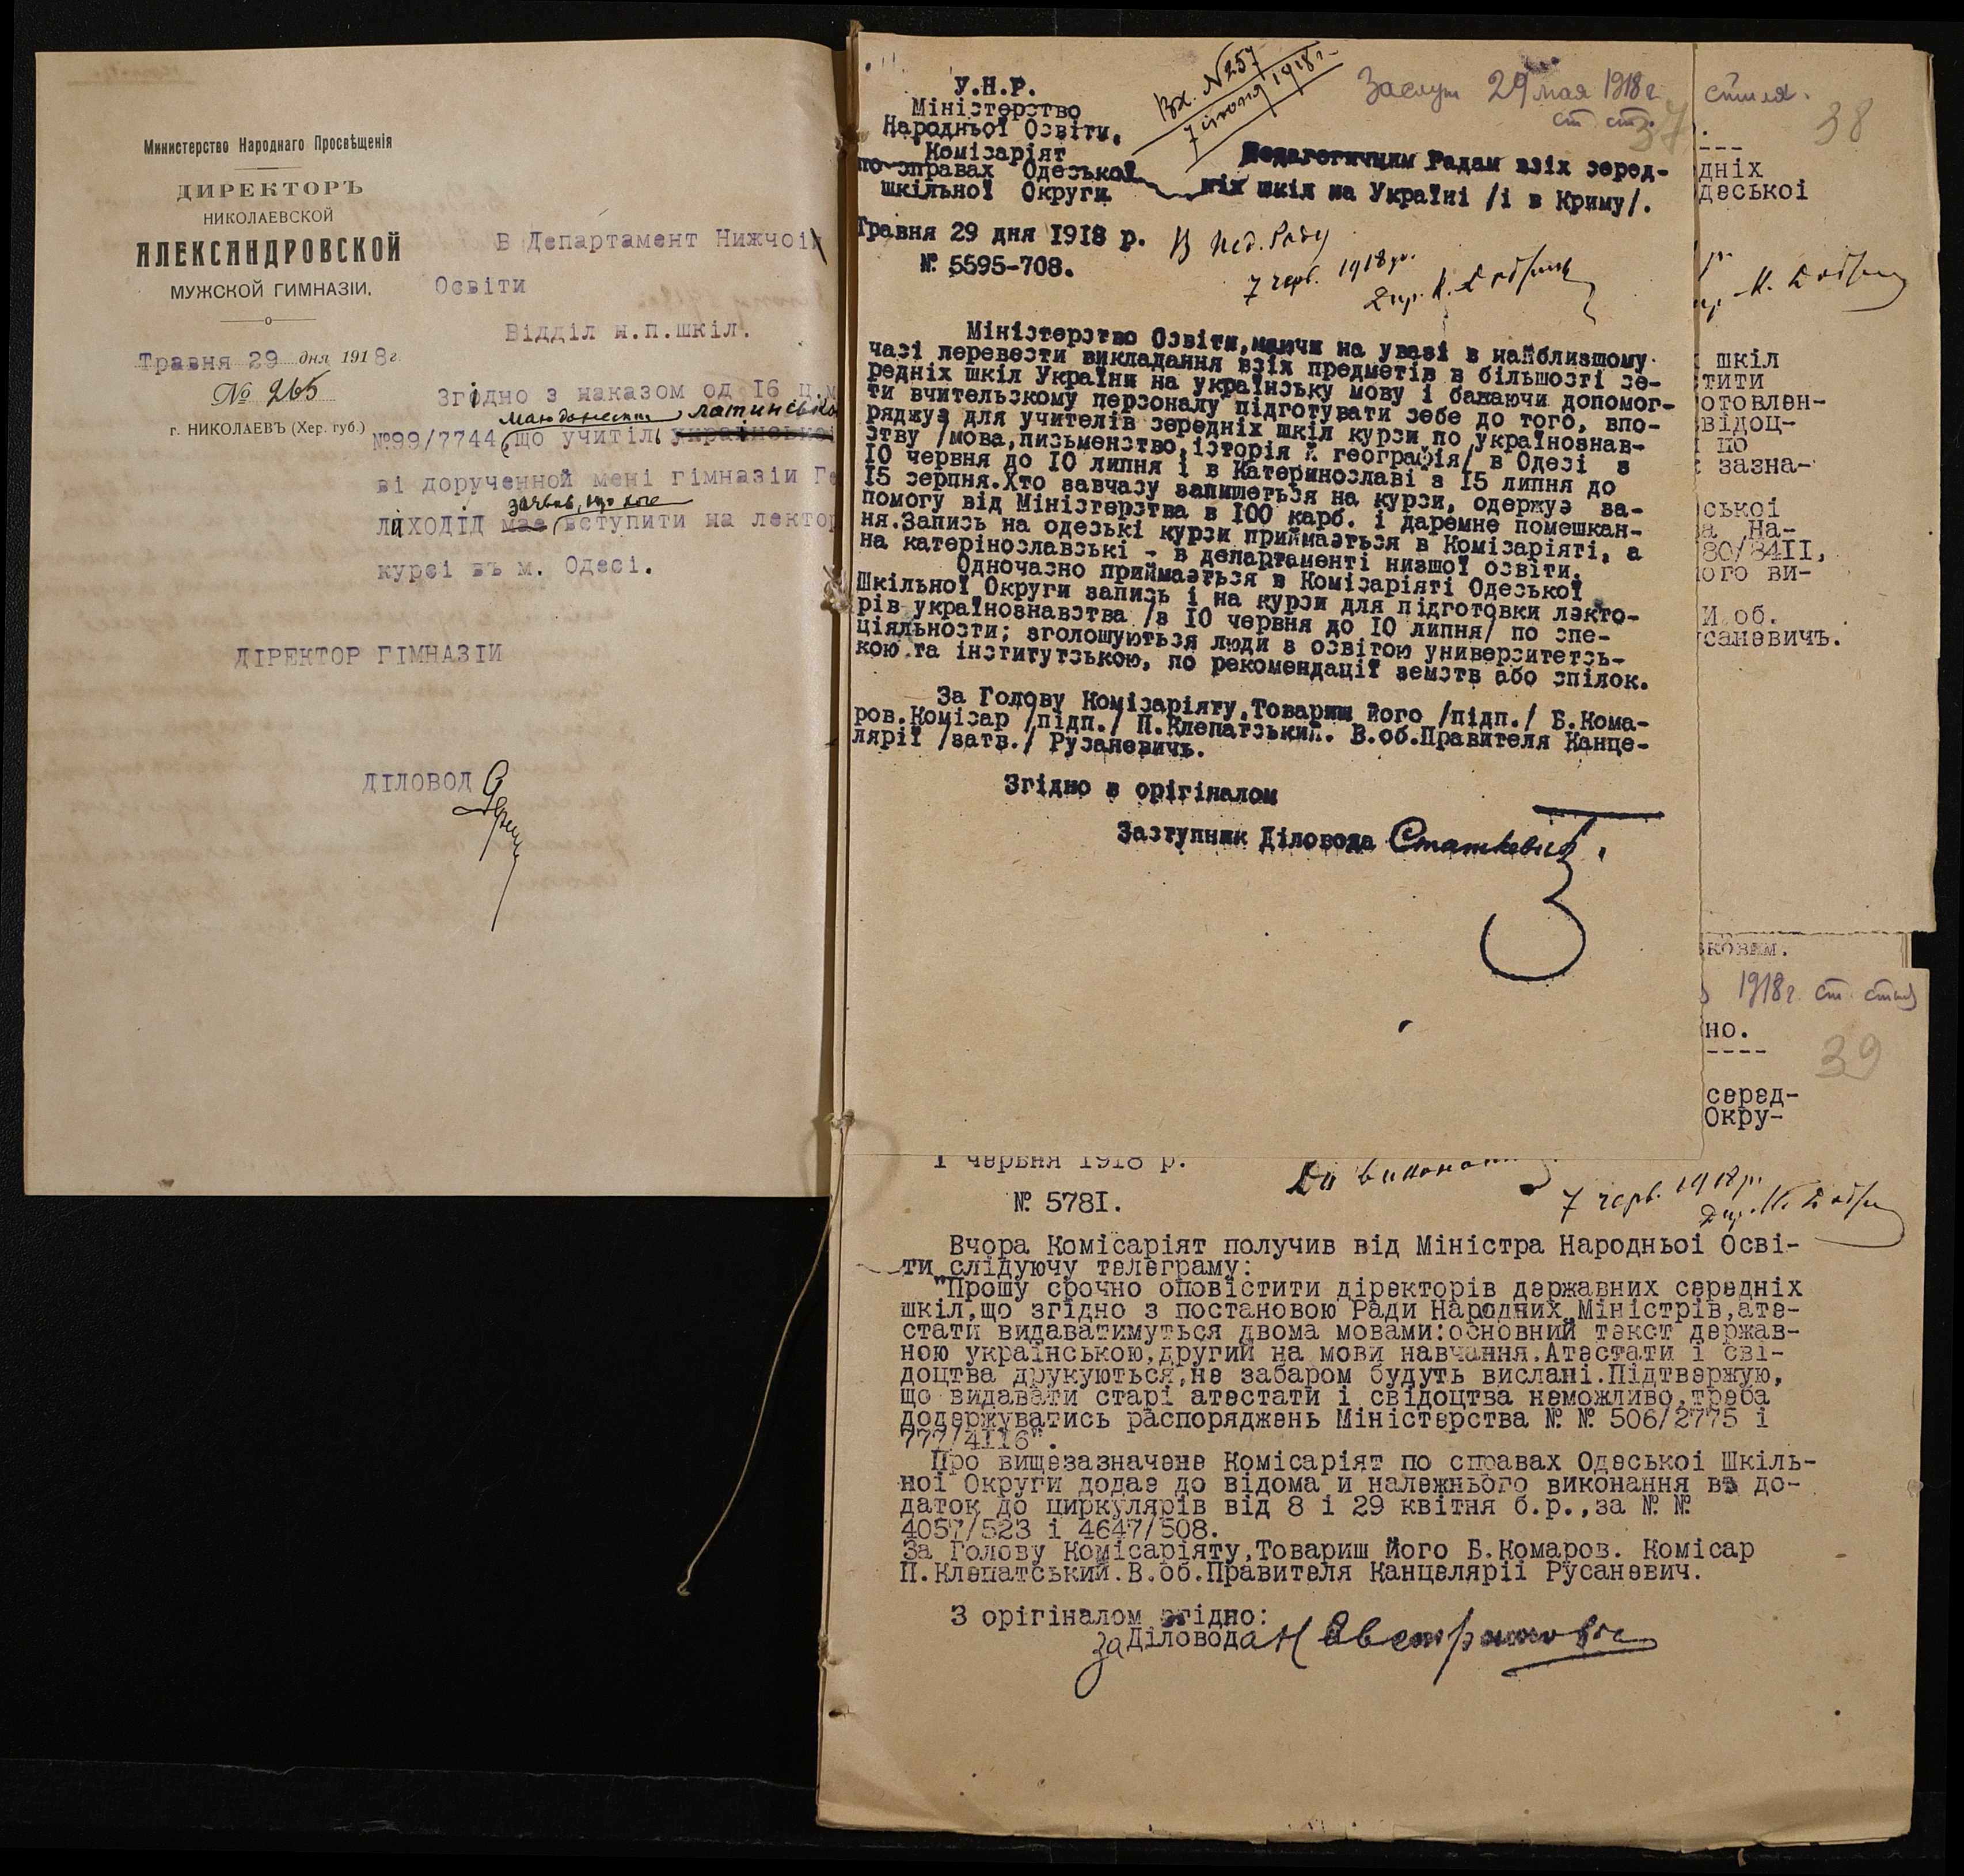 Министерство Народнаго Просвѣщенія
ДИРЕКТОРЪ
НИКОЛАЕВСКОЙ
АЛЕКСАНДРОВСКОЙ
МУЖСКОЙ ГИМНАЗІИ.
Травня 29 дня 1918 г.
№ 265
г. НИКОЛАЕВЪ (Хер. губ.)
В Департамент Нижчоі
Освіти
Відділ н.п.шкіл.
Згідно з наказом од I6 ц.м
маю донести латинсько
№99/7744, що учитіль украінсько
ві дорученной мені гімназіи Ге
заявив, що хоче
ЛИХОДІД має вступити на лектор
курсі въ м. Одесі.
ДІРЕКТОР ГІМНАЗІИ
ДІЛОВОД
У.Н.Р.
Міністерство
Народньоі Освіти.
Комізаріят
по справах Одеської
шкільної Округи
Вх. №257
7 іюня 1918 г.
Заслуш 29 мая 1918 г.
ст. ст.
37
Педагогичним Радам взіх серед-
ніх шкіл на Україні /і в Криму/.
Травня 29 дня 1918 р.
№ 5595-708.
В Пед. Раду
7 черв. 1918 р.
Дир. К.
Міністерство Освіти,маючи на увазі в найблизшому
часі перевести викладання взіх предметів в більшості се-
редніх шкіл України на українську мову і бажаючи допомог-
ти вчительзкому персоналу підготувати себе до того, впо-
ряджує для учителів середніх шкіл курзи по українознав-
ству /мова,письменство,історія й географія/ в Одесі з
I0 червня до I0 липня і в Катеринославі з I5 липня до
I5 серпня.Хто завчасу запишеться на курзи, одержує за-
помогу від Міністерства в I00 карб. і даремне помешкан-
ня.Запись на одеські курзи приймається в Комізаріяті, а
на катерінославські - в департаменті низшої освіти.
Одночасно приймається в Комізаріяті Одеської
Шкільної Округи запись і на курзи для підготовки лекто-
рів українознавства /з I0 червня до I0 липня/ по спе-
ціяльности; зголошуються люди з освітою университетсь-
кою та інститутською, по рекомендації земств або спілок.
За Голову Комізаріяту,Товариш Його /підп./ Б.Кома-
ров.Комізар /підп./ П.Клепатзький. В.об.Правителя Канце-
лярії /затв./ Русаневичь.
Згідно з орігіналом
Заступник Діловода Сташкевич
стиля.
38
дніх
деської
К.
шкіл
тити
отовлен-
відоц-
по
зазна-
ської
на-
80/84II,
ого ви-
И.об.
саневичъ.
ковам.
1918 г. ст. стиля
но.
39
серед-
Окру-
I червня 1918 р.
№ 578I.
До виконання
7 черв. 1918 р.
Дир. К.
Вчора Комісаріят получив від Міністра Народньоі Осві-
ти слідуючу телеграму:
"Прошу срочно оповістити діректорів державних середніх
шкіл,що згідно з постановою Ради Народних Міністрів,ате-
стати видаватимуться двома мовами:основний текст держав-
ною українською,другий на мови навчання.Атестати і сві-
доцтва друкуються,не забаром будуть вислані.Підтвержую,
що видавати старі атестати і свідоцтва неможливо,треба
додержуватись распоряджень Міністерства № № 506/2775 і
777/4II6".
Про вищезазначене Комісаріят по справах Одеськоі Шкіль-
ноі Округи додає до відома и належнього виконання въ до-
даток до циркулярів від 8 і 29 квітня б.р.,за № №
4057/523 і 4647/508.
За Голову Комісаріяту,Товариш Його Б.Комаров. Комісар
П.Клепатський.В.об.Правителя Канцеляріі Русаневич.
З орігіналом згідно:
за Діловода